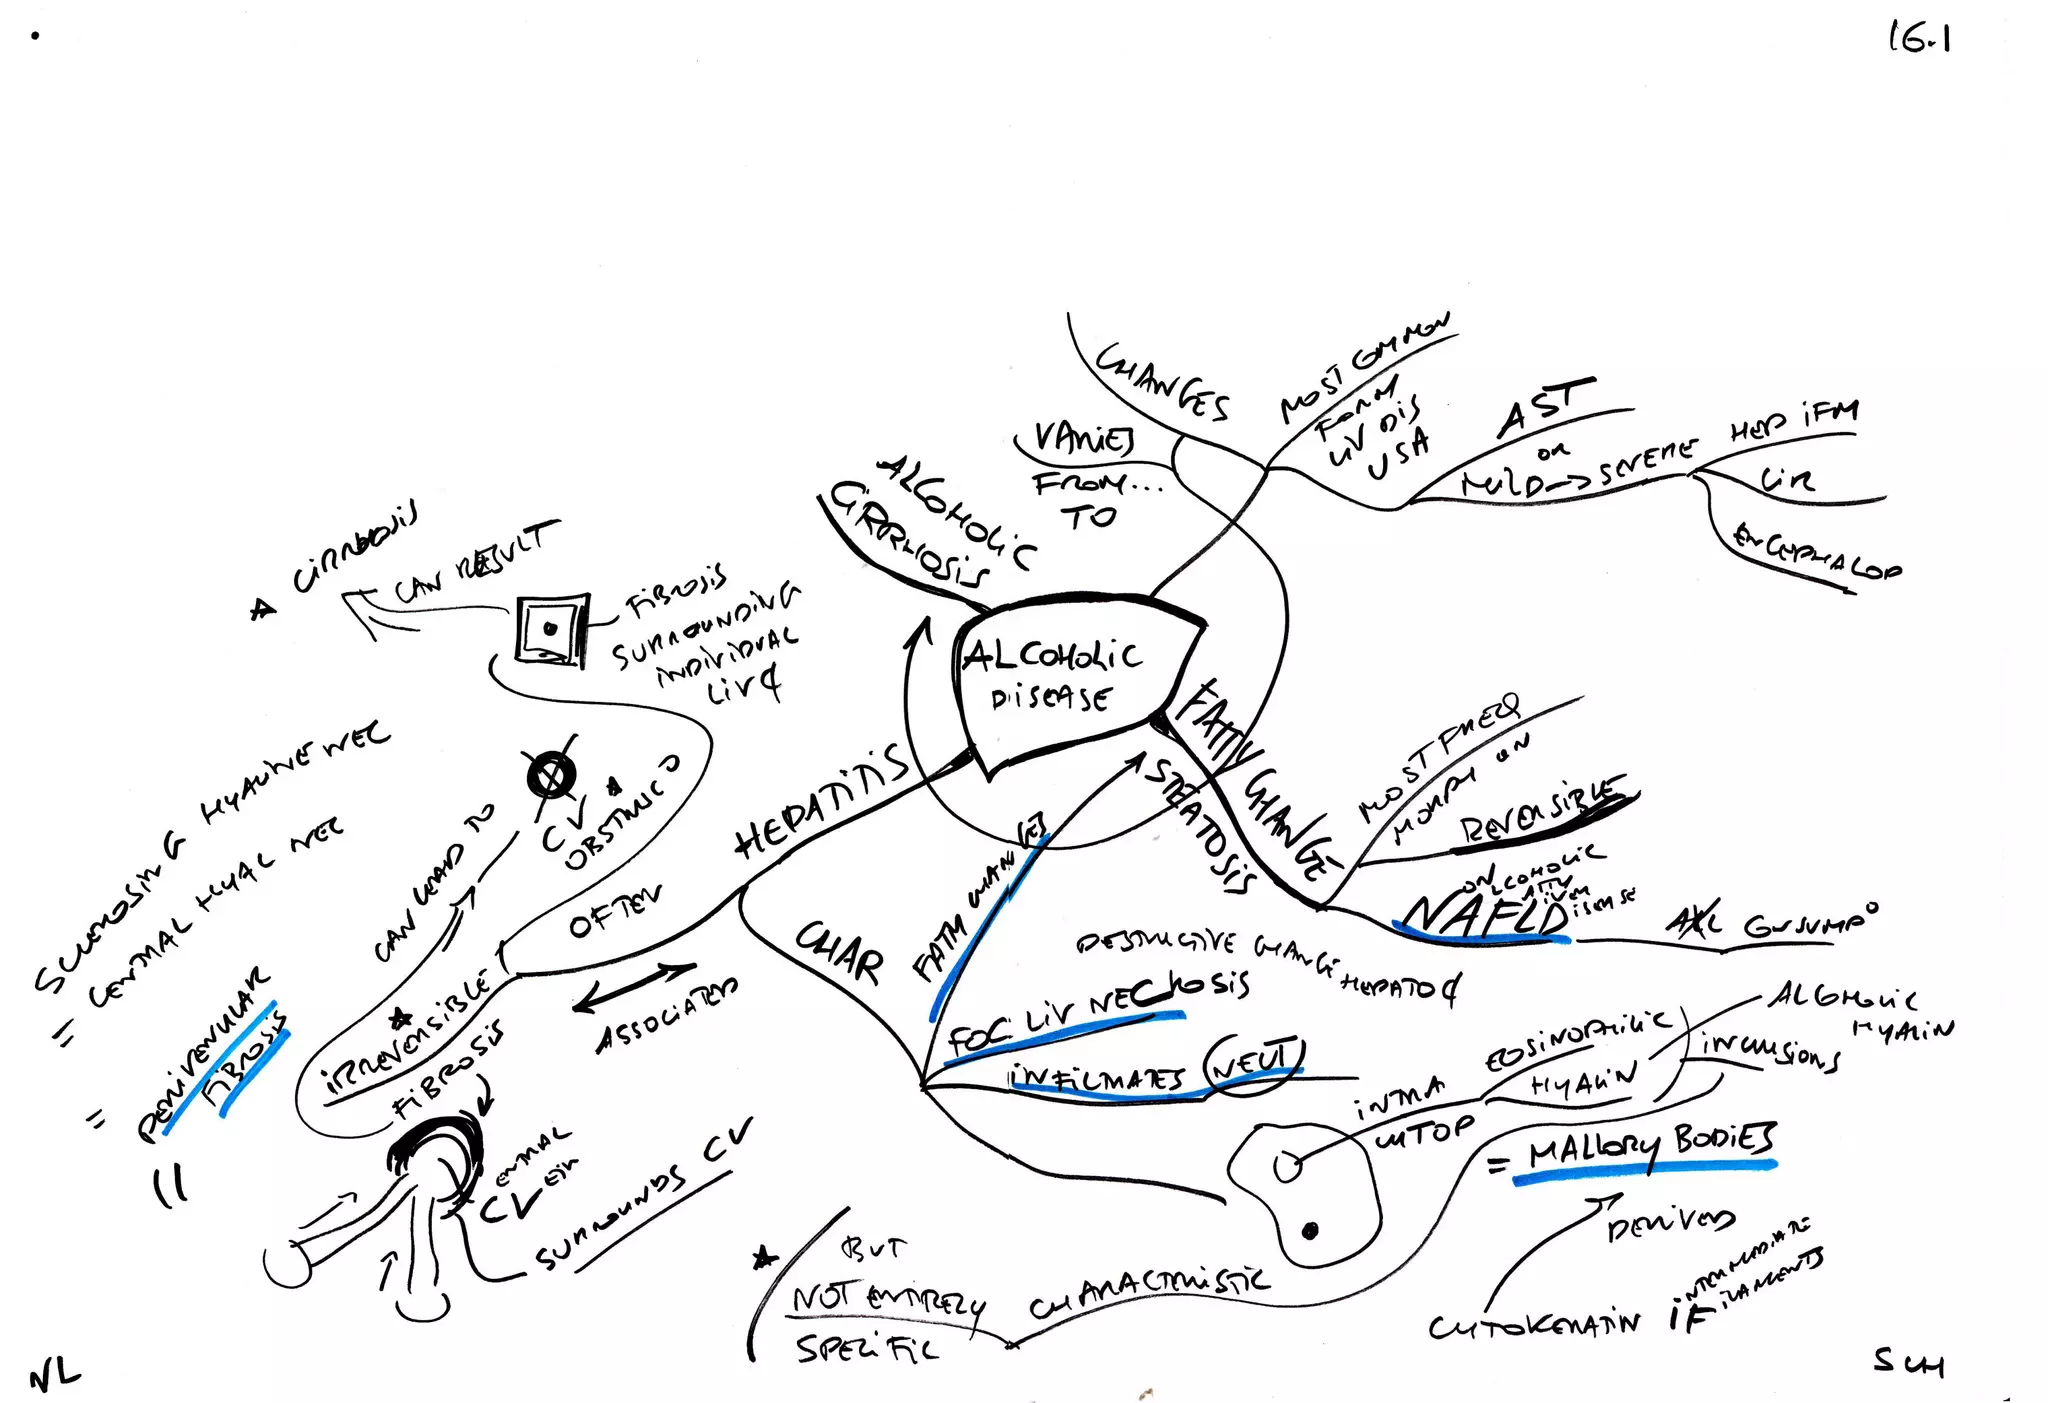 16.1
CHANGES
MOST COMMON
FORM
LIV DIS
USA
VARIES
FROM...
TO
AST
OR
MILD → SEVERE
HEP IFM
CIR
ENCEPHALOP
ALCOHOLIC
CIRRHOSIS
ALCOHOLIC
DISEASE
FATTY CHANGE
STEATOSIS
MOST FREQ
MORPH
REVERSIBLE
NAFLD
ON ALCOHOLIC
ATTY
IVER
ISEASE
CONSUMP°
HEPATITIS
CHAR
FATTY CHANGES
DESTRUCTIVE CHANGE HEPATO¢
FOC LIV NECROSIS
INFILTRATES NEUT
INTRA
CYTOP
EOSINOPHILIC
HYALIN
INCLUSIONS
ALCOHOLIC
HYALIN
= MALLORY BODIES
DERIVED
CYTOKERATIN IF
INTERMEDIATE
FILAMENTS
CHARACTERISTIC
BUT
NOT ENTIRELY
SPECIFIC
OFTEN
ASSOCIATED
IRREVERSIBLE
FIBROSIS
CENTRAL
CV EIN
SURROUNDS CV
CAN LEAD TO
CV
OBSTRUC
FIBROSIS
SURROUNDING
INDIVIDUAL
LIV¢
CAN RESULT
CIRRHOSIS
SCLEROSING HYALINE NEC
= CENTRAL HYAL NEC
= PERIVENULAR
FIBROSIS
NL
SCH